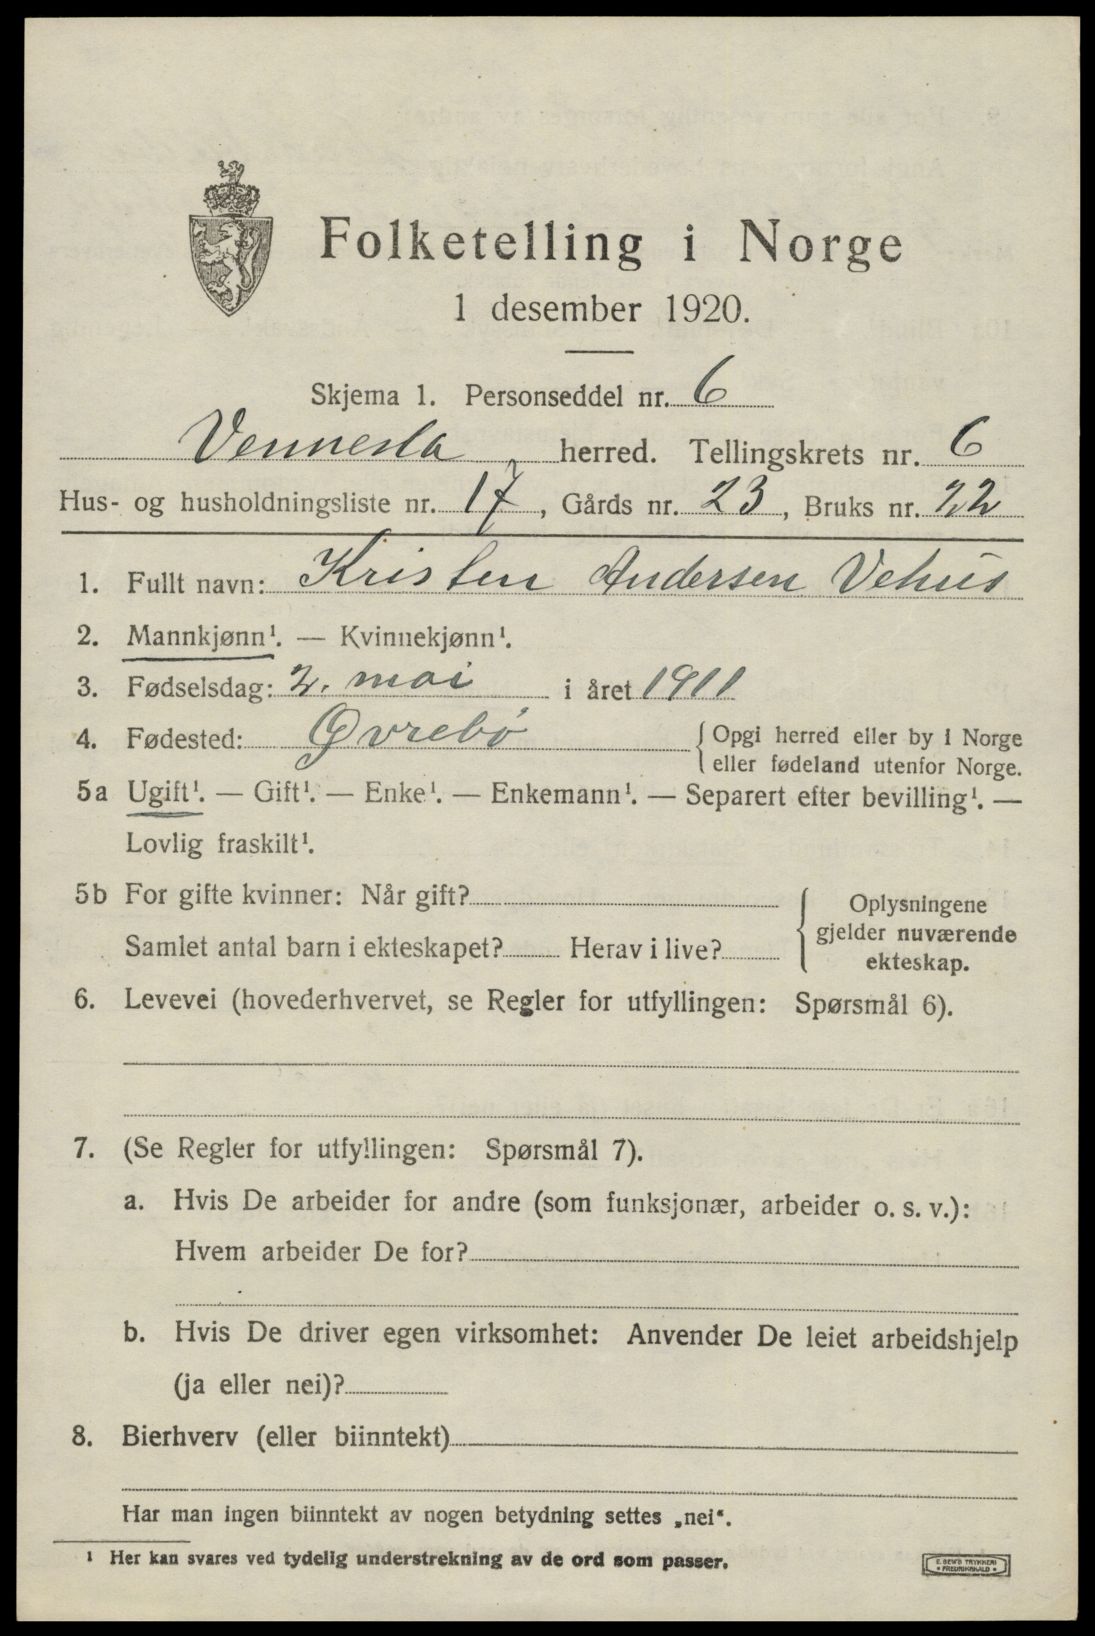 Folketelling i Norge
1 desember 1920.
Skjema 1. Personseddel nr. 6
Vennesla herred. Tellingskrets nr. 6
Hus- og husholdningsliste nr. 17, Gårds nr. 23, Bruks nr. 22
1. Fullt navn: Kristen Andersen Vehus
2. Mannkjønn¹. — Kvinnekjønn¹.
3. Fødselsdag: 2. mai i året 1911
4. Fødested: Øvrebö { Opgi herred eller by i Norge
eller fødeland utenfor Norge.
5a Ugift¹. — Gift¹. — Enke¹. — Enkemann¹. — Separert efter bevilling¹. —
Lovlig fraskilt¹.
5b For gifte kvinner: Når gift?
Samlet antal barn i ekteskapet? Herav i live?
{ Oplysningene
gjelder nuværende
ekteskap.
6. Levevei (hovederhvervet, se Regler for utfyllingen: Spørsmål 6).
7. (Se Regler for utfyllingen: Spørsmål 7).
a. Hvis De arbeider for andre (som funksjonær, arbeider o. s. v.):
Hvem arbeider De for?
b. Hvis De driver egen virksomhet: Anvender De leiet arbeidshjelp
(ja eller nei)?
8. Bierhverv (eller biinntekt)
Har man ingen biinntekt av nogen betydning settes „nei“.
¹ Her kan svares ved tydelig understrekning av de ord som passer.
E. SEM'S TRYKKERI
• FREDRIKSHALD •